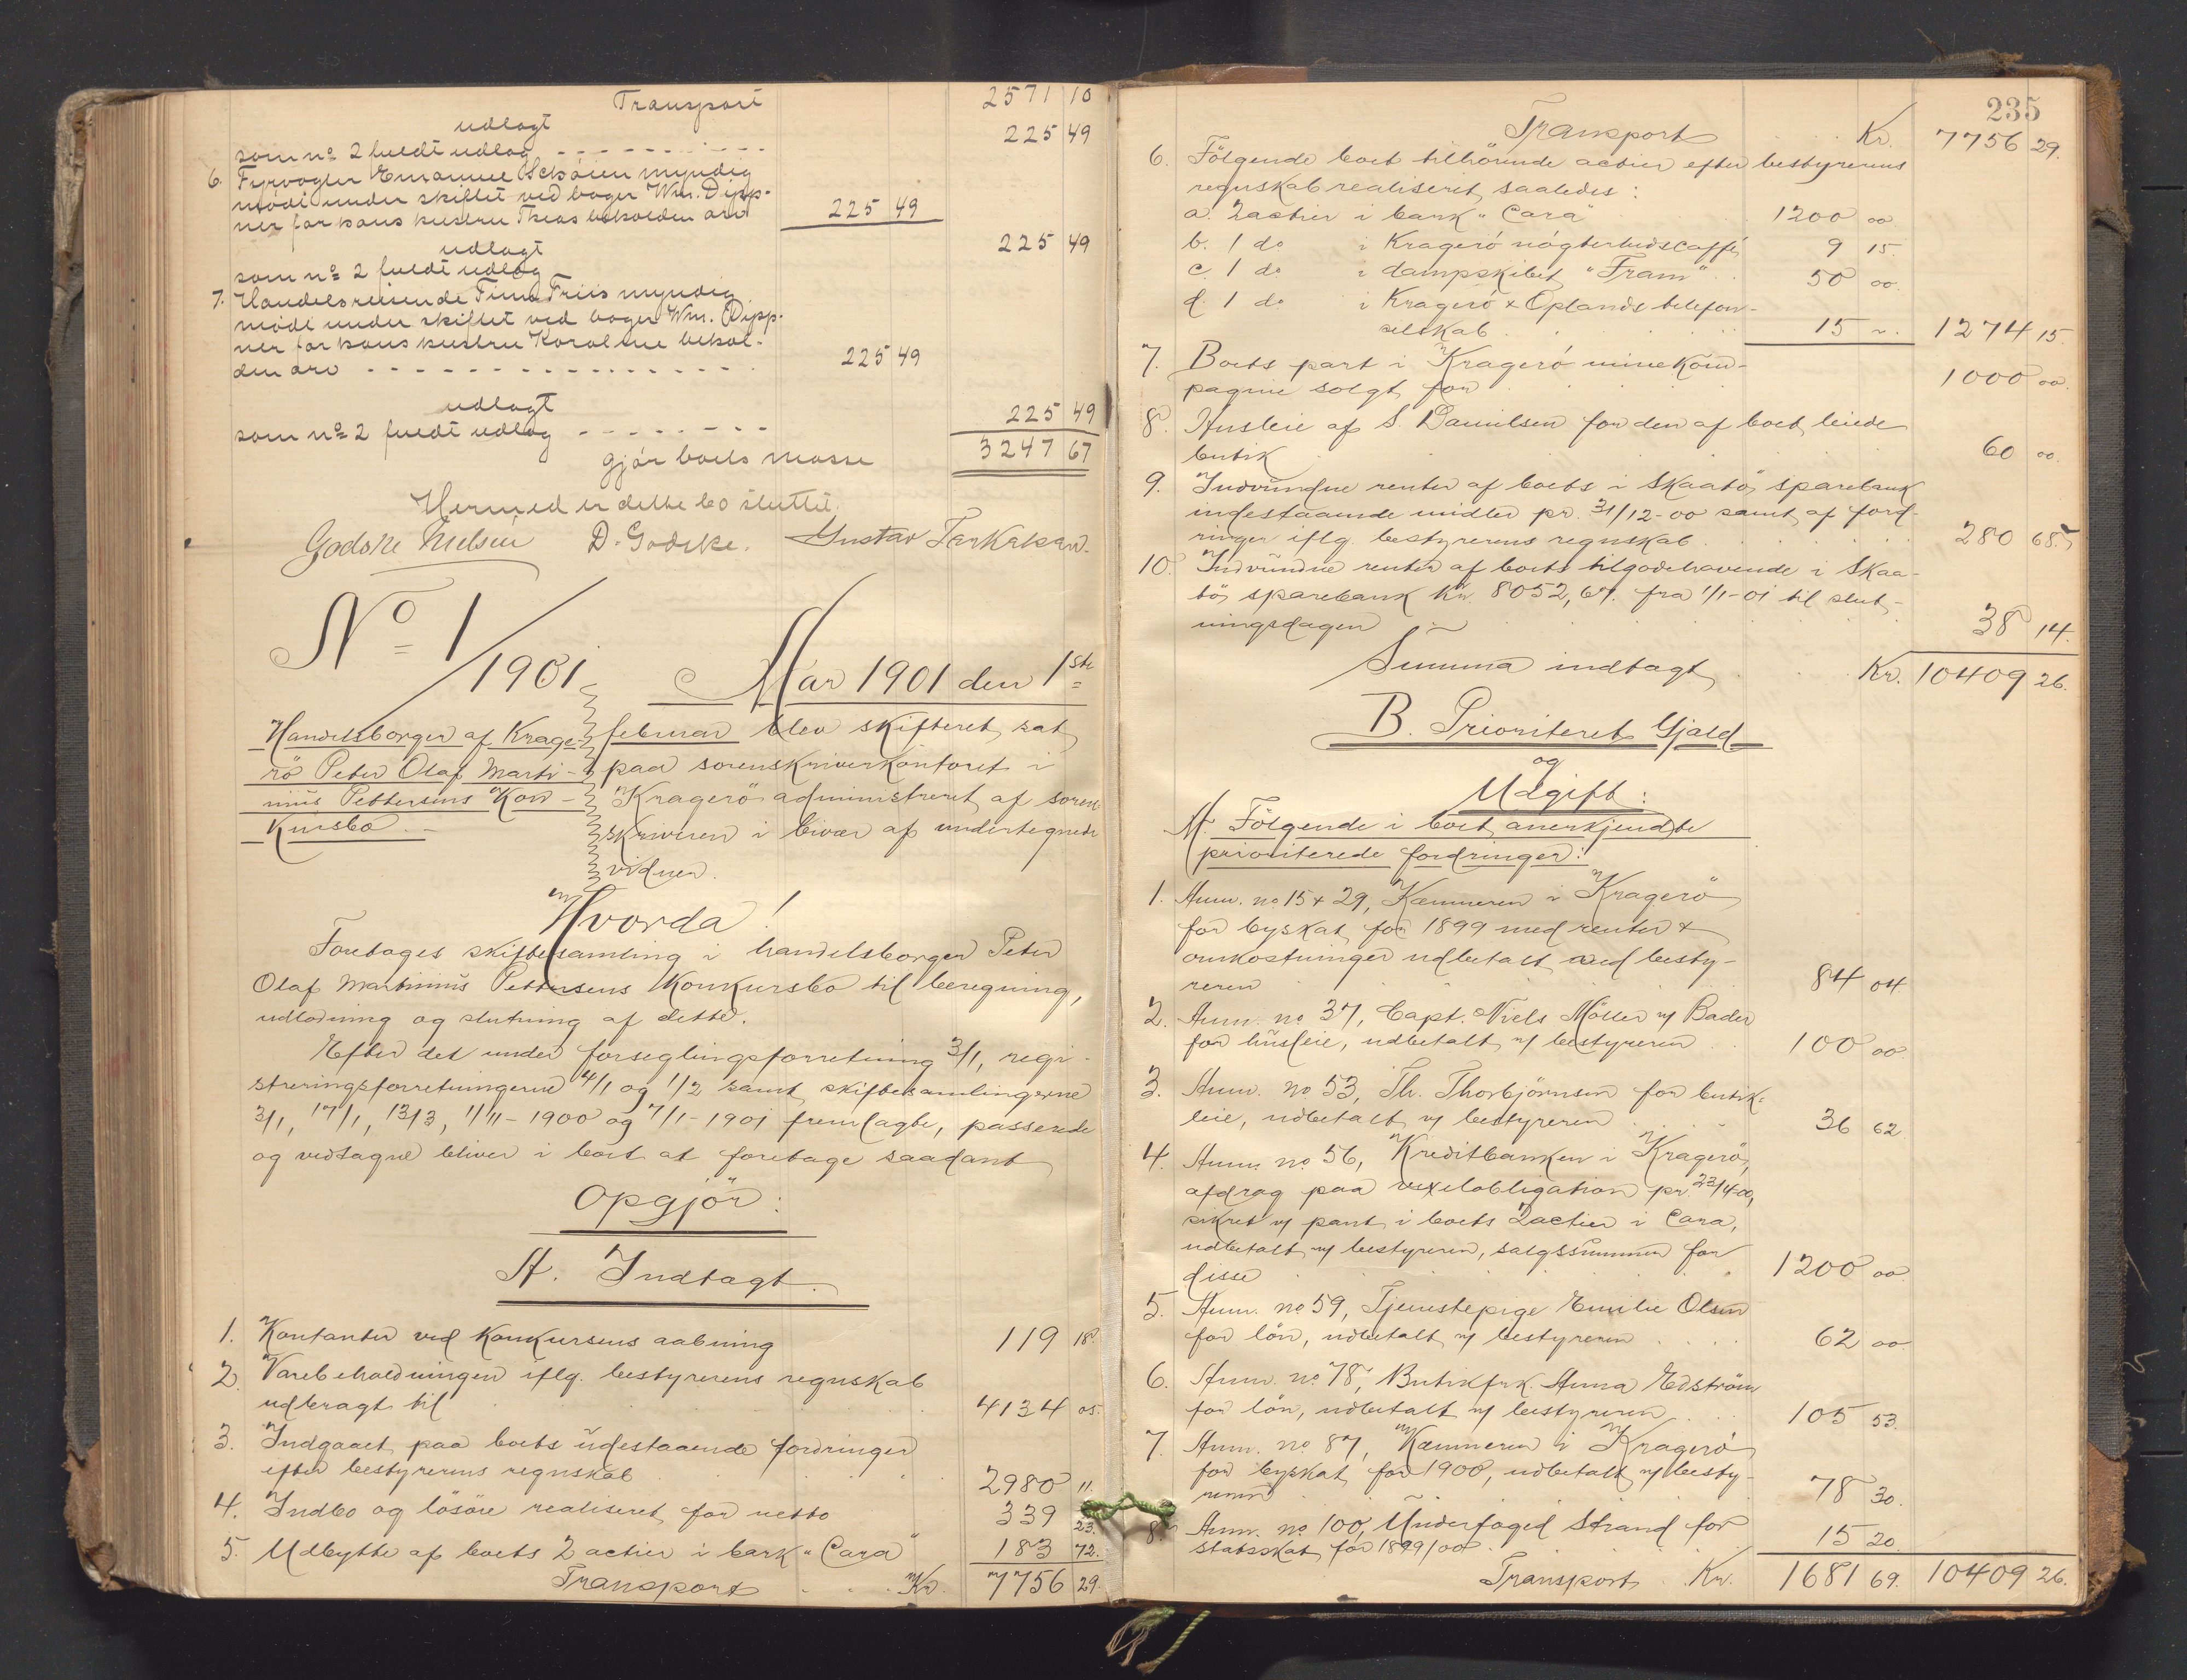 Transport 2571 10
udlagt
som no 2 fuldt udlæg 225 49
6. Fyrvogter Emanuel Schöien myndig
mödt under skiftet ved bager Wm. Dipp-
ner for hans hustru Theas beholden arv 225 49
udlagt 225 49
som no 2 fuldt udlæg
7. Handelsreisende Finn Friis myndig
mödt under skiftet ved bager Wm. Dipp-
ner for hans hustru Karoline behol-
den arv 225 49
udlagt
som no 2 fuldt udlæg 225 49
gjör boets masse 3247 67
Hermed er dette bo sluttet.
Godske Nielsen D. Godske. Gustav
No 1/1901
Aar 1901 den 1ste
Handelsborger af Krage-
rö Peter Olaf Marti-
nius Pettersens Kon-
kursbo.
februar blev skifteret sat
paa sorenskriverkontoret i
Kragerö administreret af soren-
skriveren i bivær af undertegnede
vidner.
Hvorda!
Foretoges skiftesamling i handelsborger Peter
Olaf Martinius Pettersens Konkursbo til beregning,
udlodning og slutning af dette.
Efter det under forseglingsforretning 3/1, regi-
streringsforretningerne 4/1 og 1/2 samt skiftesamlingerne
3/1, 17/1, 13/3, 1/11-1900 og 7/1-1901 fremlagte, passerede
og vedtagne bliver i boet at foretage saadant
Opgjör:
A. Indtægt.
1. Kontanter ved Konkursens aabning 119 18.
2. Varebeholdningen iflg. bestyrerens regnskab
udbragt til 4134 05.
3. Indgaaet paa boets udestaaende fordringer
efter bestyrerens regnskab 2980 11.
4. Indbo og lösöre realiseret for netto 339 23.
5. Udbytte af boets 2 actier i bark "Cara" 183 72.
Transport Kr. 7756 29.
235
Transport Kr. 7756 29.
6. Fölgende boet tilhörende actier efter bestyrerens
regnskab realiseret saaledes:
a. 2 actier i bark "Cara" 1200 00
b. 1 do i Kragerö nögterhedscaffé 9 15.
c. 1 do i dampskibet "Fram" 50 00.
d. 1 do i Kragerö & Oplands telefon-
selskab 15 ". 1274 15.
7. Boets part i Kragerö minekom-
pagnie solgt for 1000 00.
8. Husleie af S. Danielsen for den af boet leiede
butik 60 00.
9. Indvundne renter af boets i Skaatö sparebank
indestaaende midler pr. 31/12-00 samt af ford-
ringer iflg. bestyrerens regnskab 280 68.
10. Indvundne renter af boets tilgodehavende i Skaa-
tö sparebank Kr. 8052,67. fra 1/1-01 til slut-
ningsdagen 38 14.
Summa indtægt Kr. 10409 26.
B. Prioriteret Gjæld
og
Udgift:
A. Fölgende i boet anerkjendte
prioriterede fordringer:
1. Anm. no 15 & 29, Kæmneren i Kragerö
for byskat for 1899 med renter &
omkostninger udbetalt ved besty-
reren 84 04.
2. Anm. no 37, Capt. Niels Möller v/ Bader
for husleie, udbetalt v/ bestyreren 100 00.
3. Anm. no 53, Th. Thorbjörnsen for butik-
leie, udbetalt v/ bestyreren 36 62.
4. Anm. no 56, Kreditbanken i Kragerö,
afdrag paa vexelobligation pr. 23/4-00,
sikret v/ pant i boets 2 actier i Cara,
udbetalt v/ bestyreren, salgssummen for
disse 1200 00.
5. Anm. no 59, Tjenestepige Emilie Olsen
for lön, udbetalt v/ bestyreren 62 00.
6. Anm. no 78, Butikfrk. Anna Edström
for lön, udbetalt v/ bestyreren 105 53.
7. Anm. no 87, Kæmneren i Kragerö
for byskat for 1900, udbetalt v/ besty-
reren 78 30.
8. Anm. no 100, Underfoged Strand for
statsskat for 1899/00 15 20.
Transport Kr. 1681 69. 10409 26.